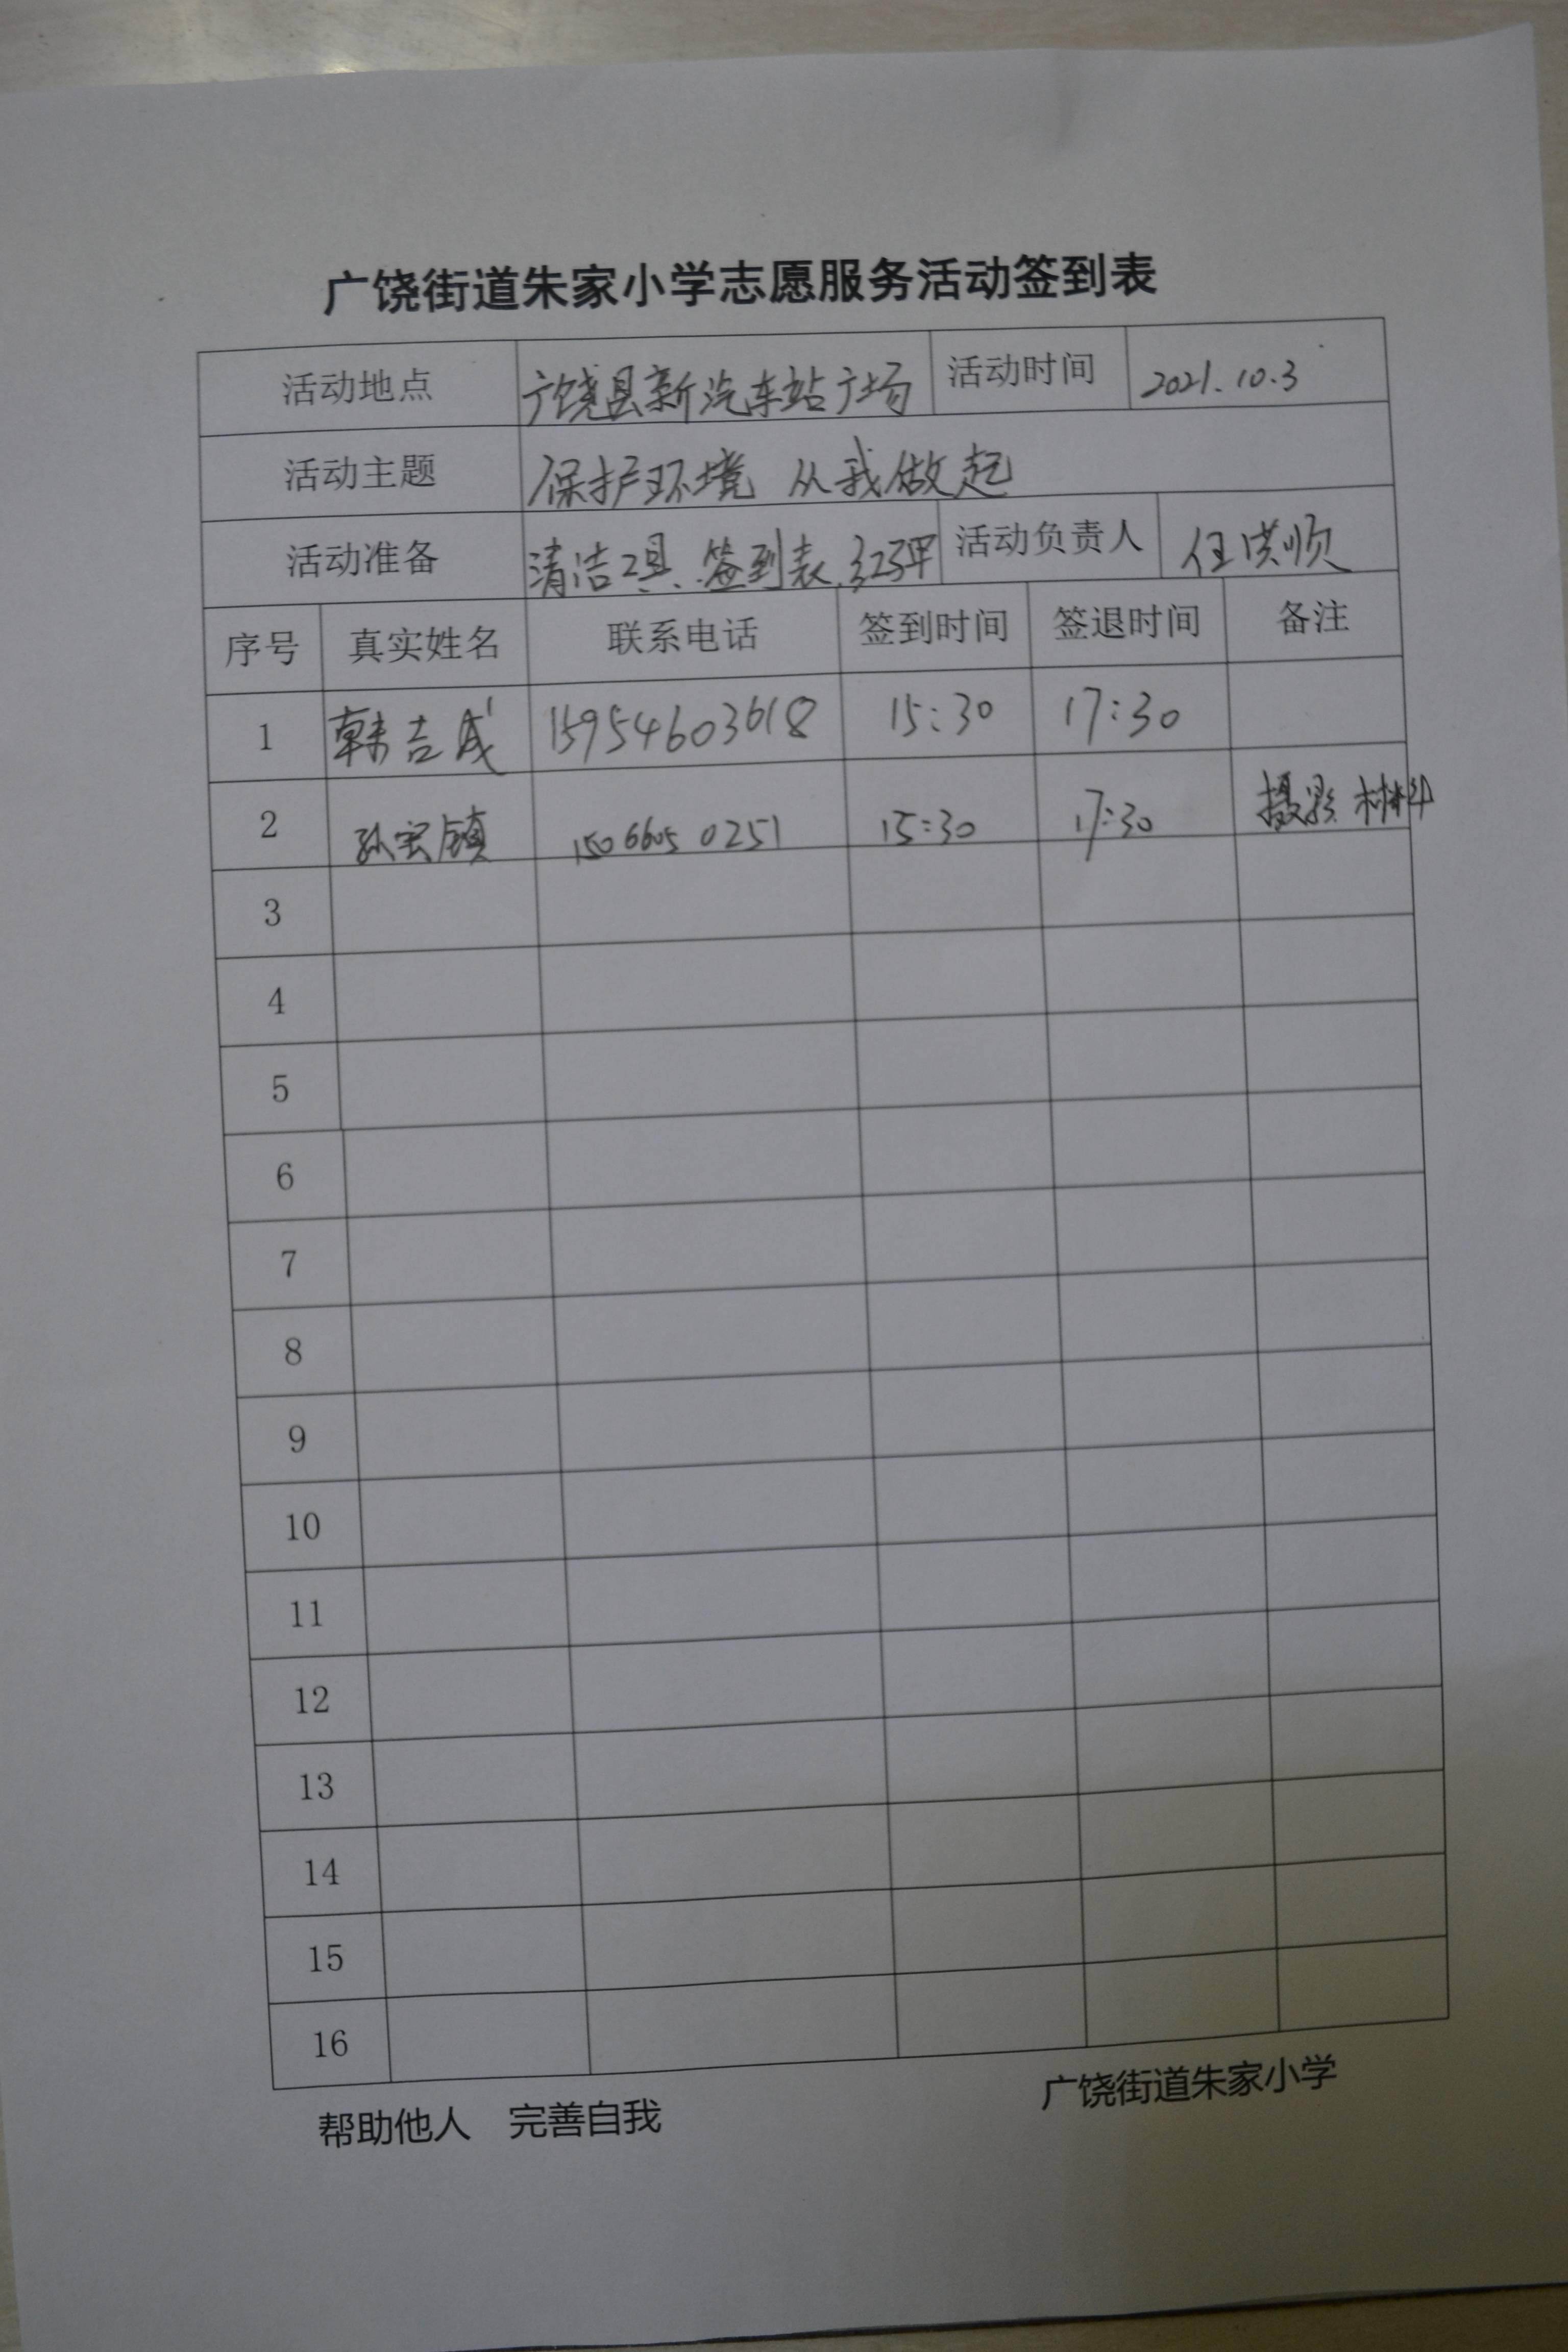 广饶街道朱家小学志愿服务活动签到表
活动地点 广饶县新汽车站广场 活动时间 2021.10.3
活动主题 保护环境 从我做起
活动准备 清洁工具、签到表、红马甲 活动负责人 任洪顺
序号 真实姓名 联系电话 签到时间 签退时间 备注
1 韩吉成 15954603618 15:30 17:30
2 孙宝镇 150 6605 0251 15:30 17:30 摄影 材料
3
4
5
6
7
8
9
10
11
12
13
14
15
16
帮助他人 完善自我 广饶街道朱家小学